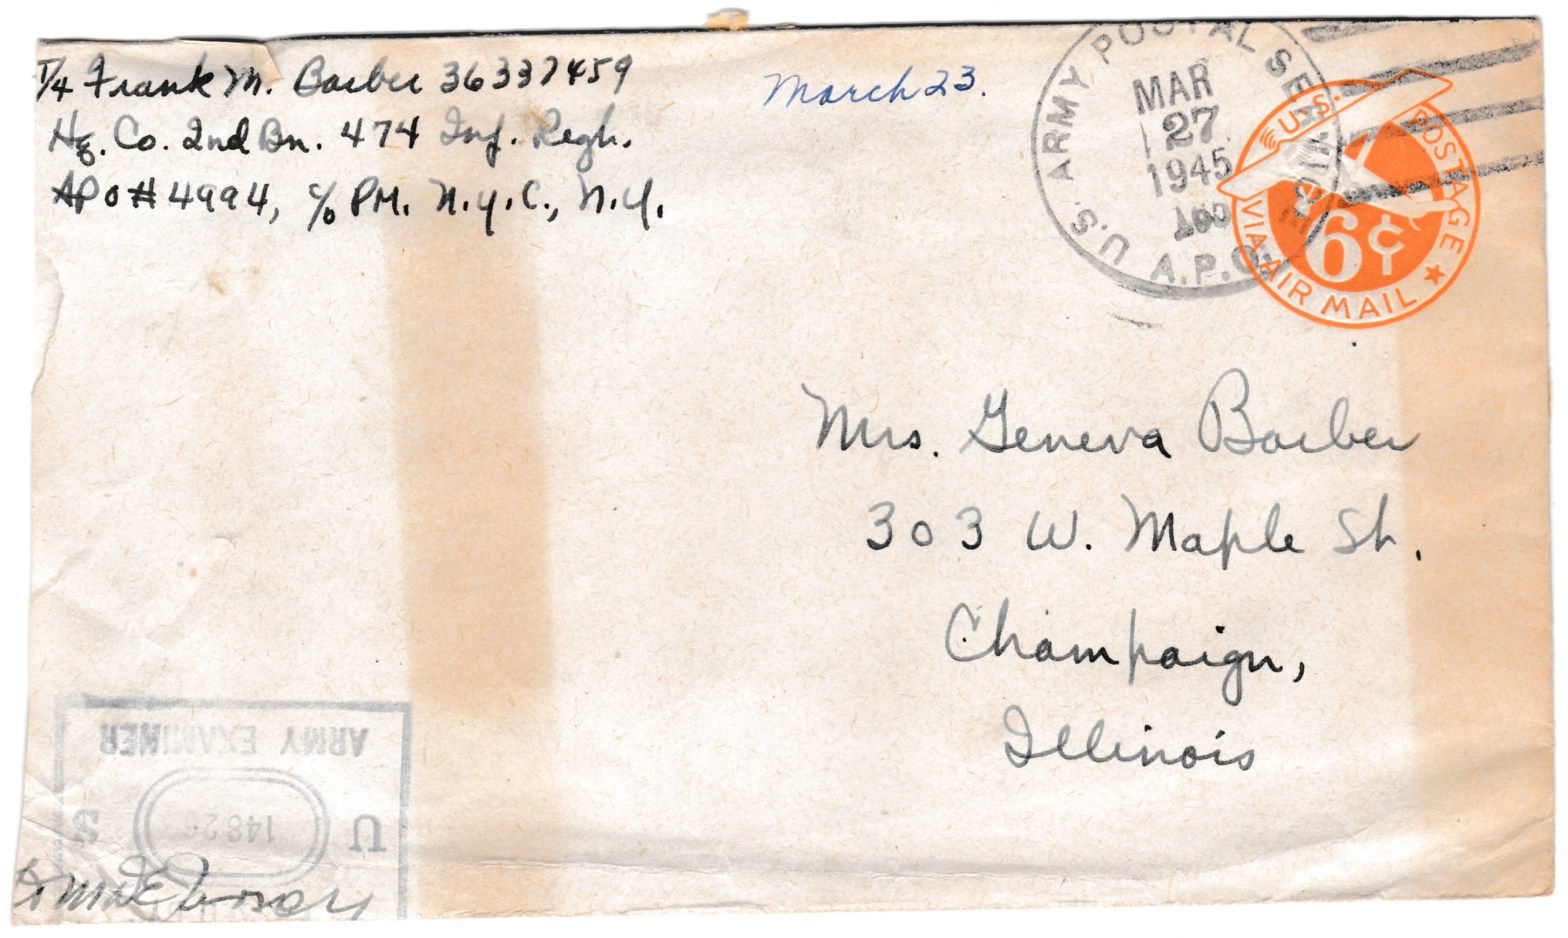 T/4 Frank M. Barber 36337459
Hq. Co. 2nd Bn. 474 Inf. Regt.
APO # 4994, c/o PM. N.Y.C., N.Y.
March 23.
U.S. ARMY POSTAL SERVICE
MAR
27
1945
A.P.O.
U.S. POSTAGE
6¢
VIA AIR MAIL
Mrs. Geneva Barber
303 W. Maple St.
Champaign,
Illinois
ARMY EXAMINER
U S